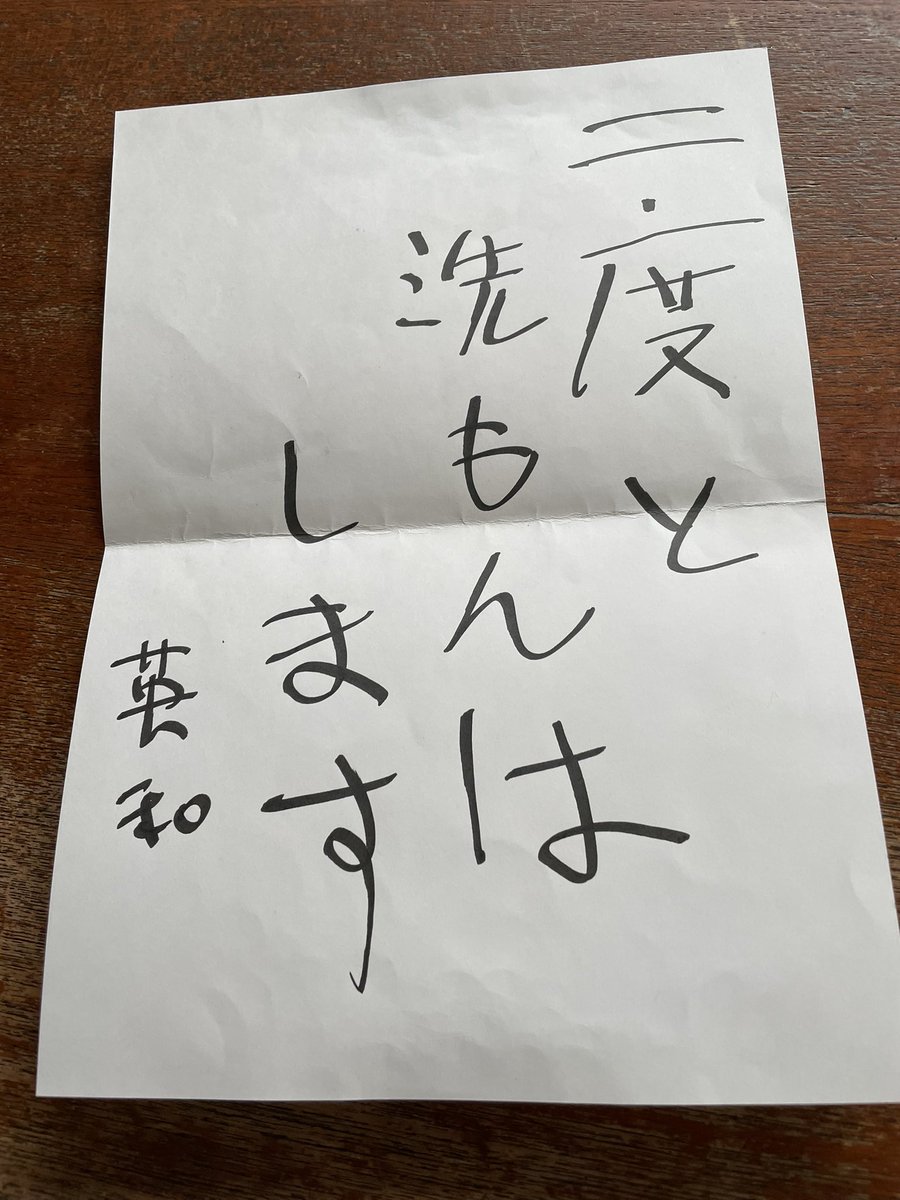 二度と
洗もんは
します
英和